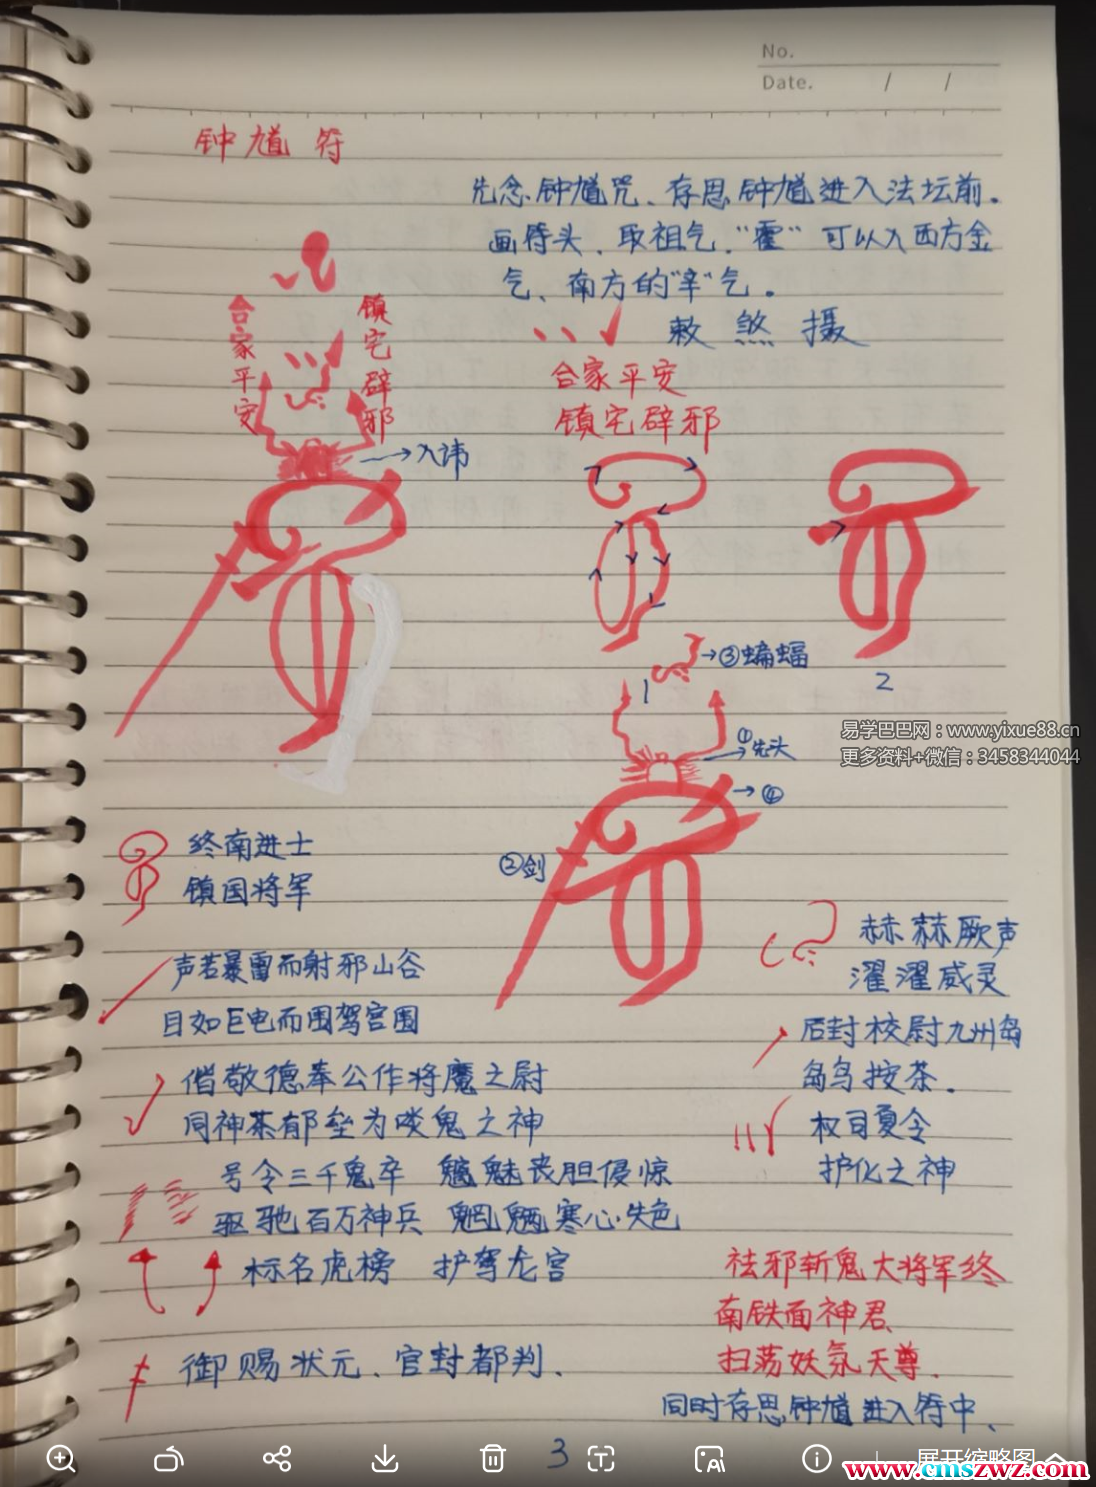 No.
Date. / /
钟馗符
先念钟馗咒、存思钟馗进入法坛前。
画符头、取祖气,"霍"可以入西方金
气、南方的"辛"气。
敕 煞 摄
合家平安
镇宅辟邪
合家平安
镇宅辟邪
入讳
1
2
③蝙蝠
①先头
④
②剑
易学巴巴网:www.yixue88.cn
更多资料+微信:3458344044
终南进士
镇国将军
声若暴雷而射邪山谷
目如巨电而围驾宫围
偕敬德奉公作将魔之尉
同神荼郁垒为啖鬼之神
号令三千鬼卒 魑魅丧胆侵惊
驱驰百万神兵 魍魉寒心失色
标名虎榜 护驾龙宫
御赐状元、官封都判、
赫赫厥声
濯濯威灵
后封校尉九州岛
岛鸟按茶.
权司夏令
护化之神
祛邪斩鬼大将军终
南铁面神君、
扫荡妖氛天尊.
同时存思钟馗进入符中、
3
展开缩略图
www.cmszwz.com